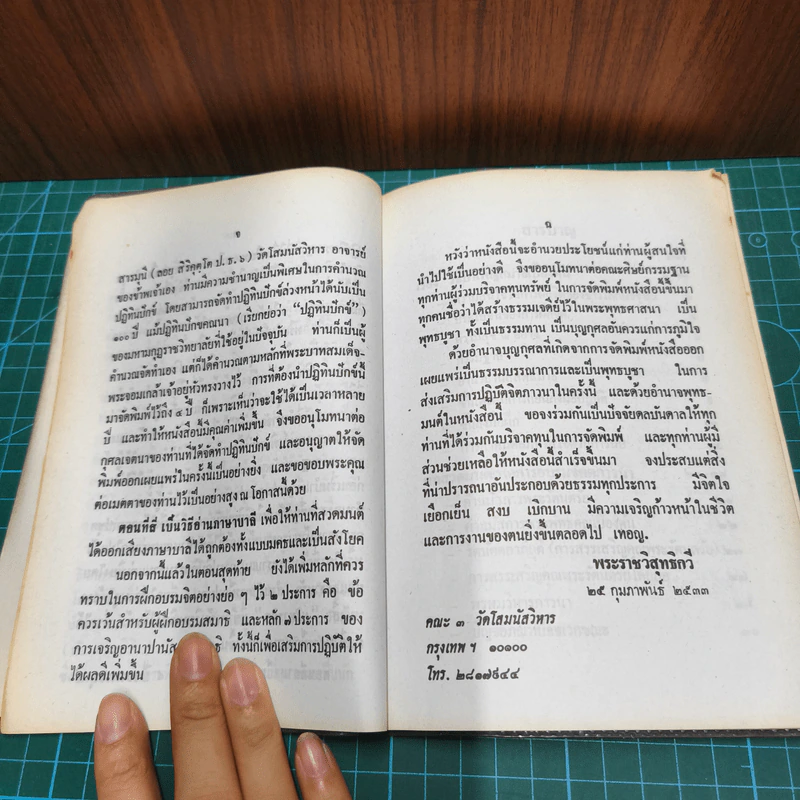 จ
สารมุนี (ลอย สิริคุตฺโต ป.ธ. ๖) วัดโสมนัสวิหาร อาจารย์
ของข้าพเจ้าเอง ท่านมีความชำนาญเป็นพิเศษในการคำนวณ
ปฏิทินปักข์ โดยสามารถจัดทำปฏิทินปักข์ล่วงหน้าได้นับเป็น
๑๐๐ ปี แม้ปฏิทินปักขคณนา (เรียกย่อว่า “ปฏิทินปักข์”)
ของมหามกุฏราชวิทยาลัยที่ใช้อยู่ในปัจจุบัน ท่านก็เป็นผู้
คำนวณจัดทำเอง แต่ก็ได้คำนวณตามหลักที่พระบาทสมเด็จ-
พระจอมเกล้าเจ้าอยู่หัวทรงวางไว้ การที่ต้องนำปฏิทินปักข์นี้
มาจัดพิมพ์ไว้ถึง ๔ ปี ก็เพราะเห็นว่าจะใช้ได้เป็นเวลาหลาย
ปี และทำให้หนังสือนี้มีคุณค่าเพิ่มขึ้น จึงขออนุโมทนาต่อ
กุศลเจตนาของท่านที่ได้จัดทำปฏิทินปักข์ และอนุญาตให้จัด
พิมพ์ออกเผยแพร่ในครั้งนี้เป็นอย่างยิ่ง และขอขอบพระคุณ
ต่อเมตตาของท่านไว้เป็นอย่างสูง ณ โอกาสนี้ด้วย
ตอนที่สี่ เป็นวิธีอ่านภาษาบาลี เพื่อให้ท่านที่สวดมนต์
ได้ออกเสียงภาษาบาลีได้ถูกต้องทั้งแบบมคธและเป็นสังโยค
นอกจากนี้แล้วในตอนสุดท้าย ยังได้เพิ่มหลักที่ควร
ทราบในการฝึกอบรมจิตอย่างย่อ ๆ ไว้ ๒ ประการ คือ ข้อ
ควรเว้นสำหรับผู้ฝึกอบรมสมาธิ และหลัก ๗ ประการ ของ
การเจริญอานาปานัส ทั้งนี้ก็เพื่อเสริมการปฏิบัติให้
ได้ผลดีเพิ่มขึ้น
ฉ
หวังว่าหนังสือนี้จะอำนวยประโยชน์แก่ท่านผู้สนใจที่
นำไปใช้เป็นอย่างดี จึงขออนุโมทนาต่อคณะศิษย์กรรมฐาน
ทุกท่านผู้ร่วมบริจาคทุนทรัพย์ ในการจัดพิมพ์หนังสือนี้ขึ้นมา
ทุกคนชื่อว่าได้สร้างธรรมเจดีย์ไว้ในพระพุทธศาสนา เป็น
พุทธบูชา ทั้งเป็นธรรมทาน เป็นบุญกุศลอันควรแก่การภูมิใจ
ด้วยอำนาจบุญกุศลที่เกิดจากการจัดพิมพ์หนังสือออก
เผยแพร่เป็นธรรมบรรณาการและเป็นพุทธบูชา ในการ
ส่งเสริมการปฏิบัติจิตภาวนาในครั้งนี้ และด้วยอำนาจพุทธ-
มนต์ในหนังสือนี้ ขอจงร่วมกันเป็นปัจจัยดลบันดาลให้ทุก
ท่านที่ได้ร่วมกันบริจาคทุนในการจัดพิมพ์ และทุกท่านผู้มี
ส่วนช่วยเหลือให้หนังสือนี้สำเร็จขึ้นมา จงประสบแต่สิ่ง
ที่น่าปรารถนาอันประกอบด้วยธรรมทุกประการ มีจิตใจ
เยือกเย็น สงบ เบิกบาน มีความเจริญก้าวหน้าในชีวิต
และการงานของตนยิ่งขึ้นตลอดไป เทอญ.
พระราชวิสุทธิกวี
๒๕ กุมภาพันธ์ ๒๕๓๓
คณะ ๓ วัดโสมนัสวิหาร
กรุงเทพ ฯ ๑๐๑๐๐
โทร. ๒๘๑๗๙๔๔